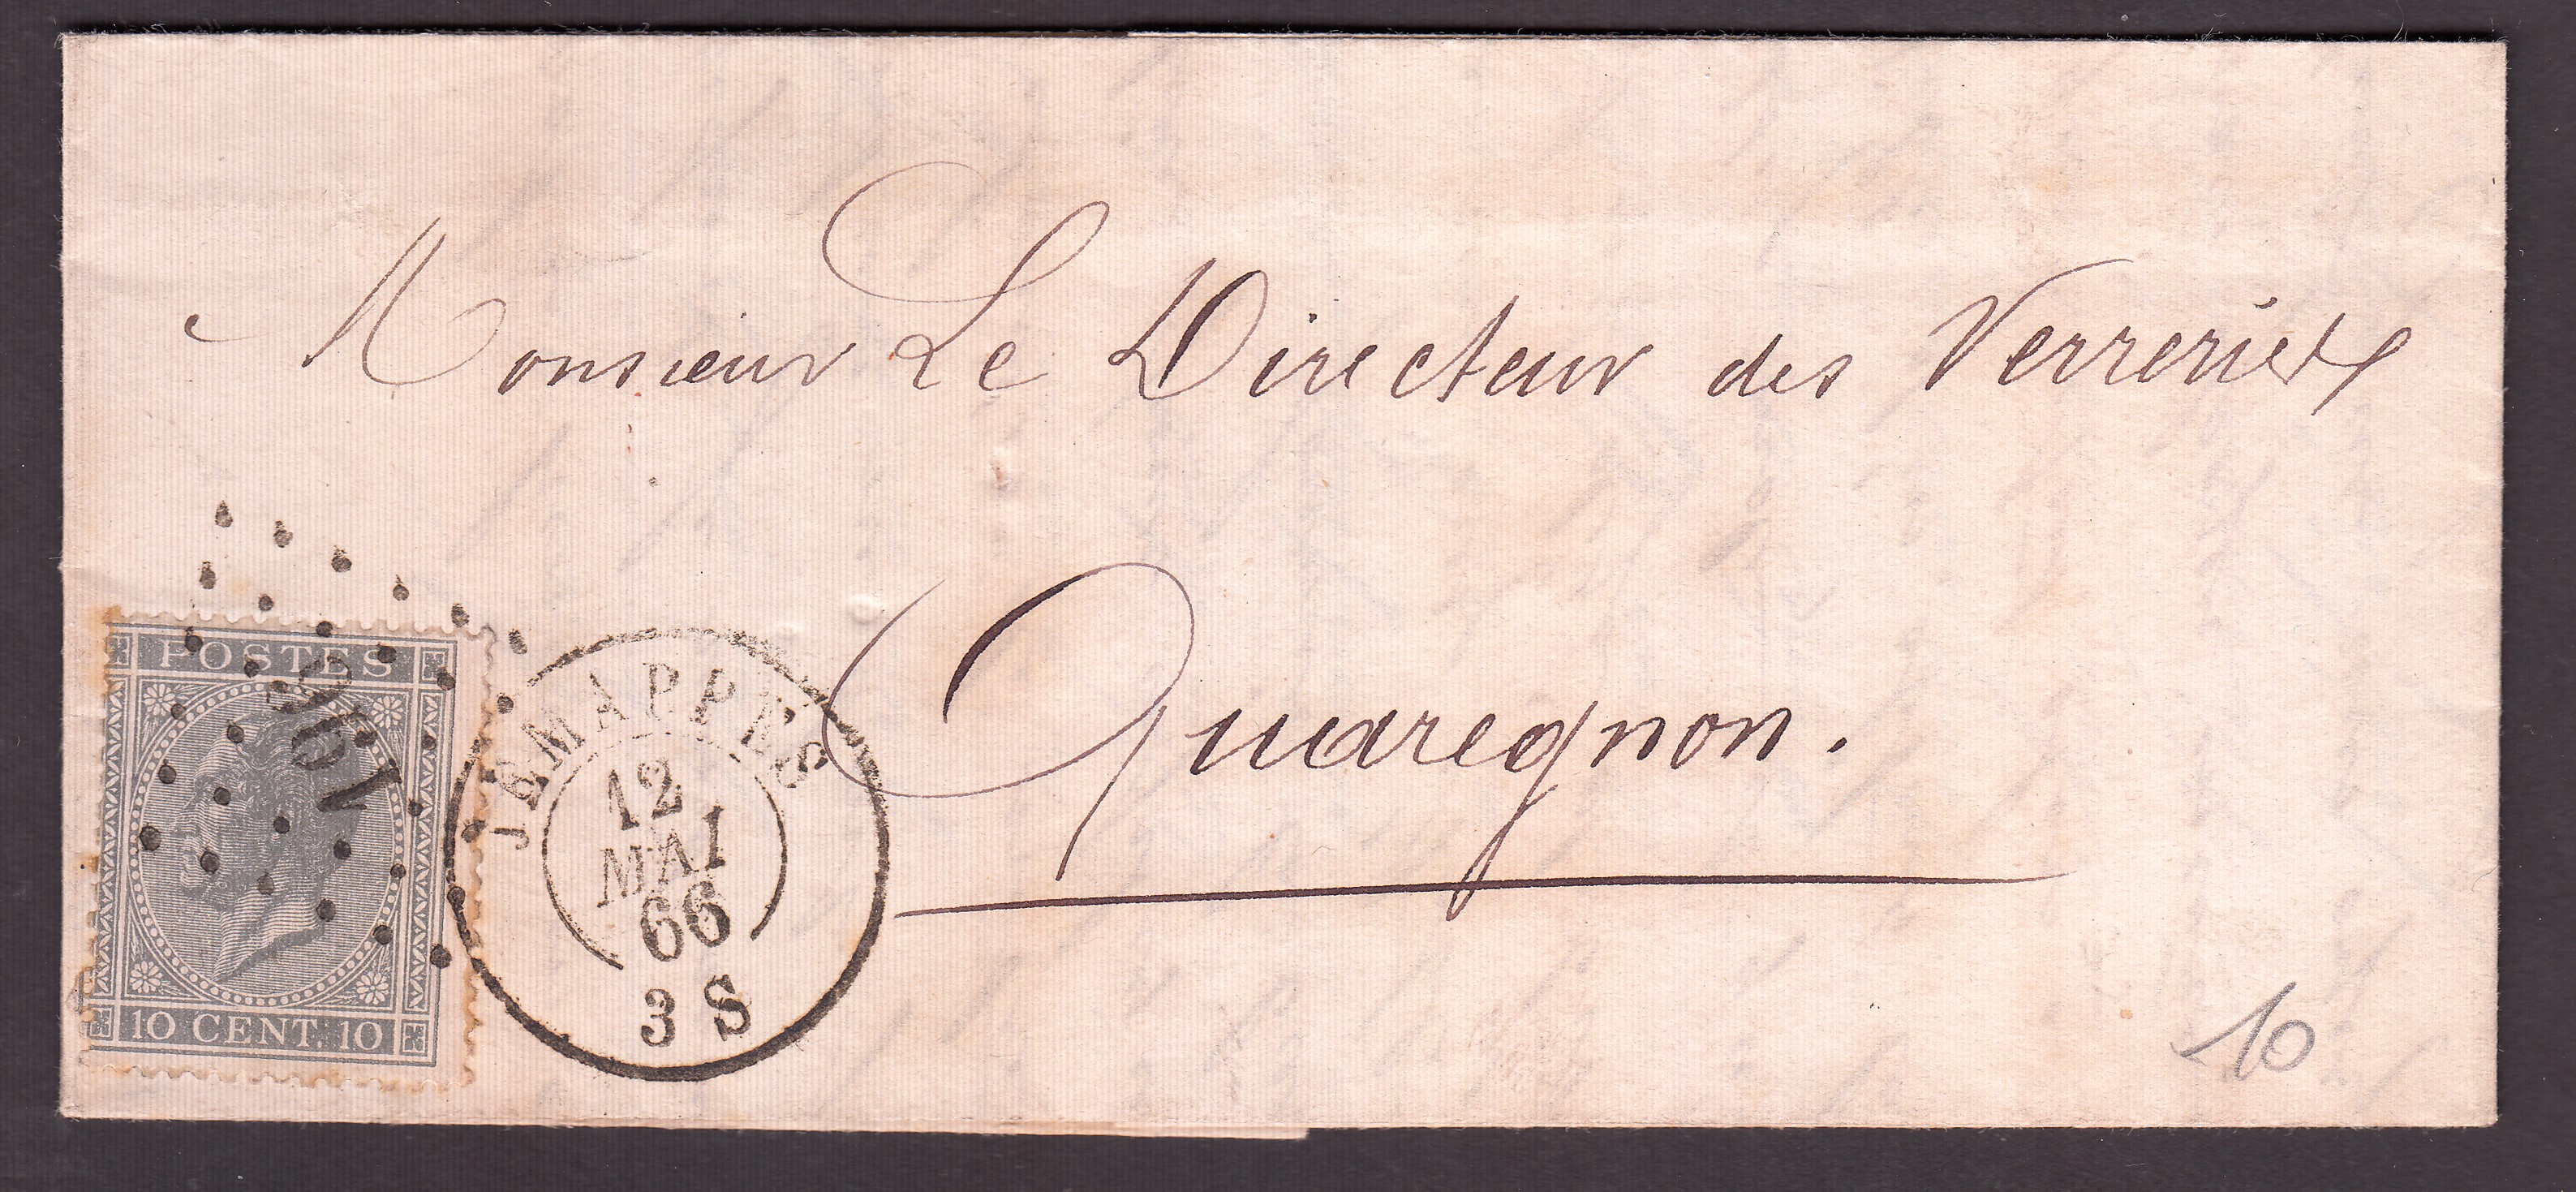 Monsieur Le Directeur des Verreries
Quaregnon.
POSTES
196
10 CENT. 10
JEMAPPES
12
MAI
66
3 S
10